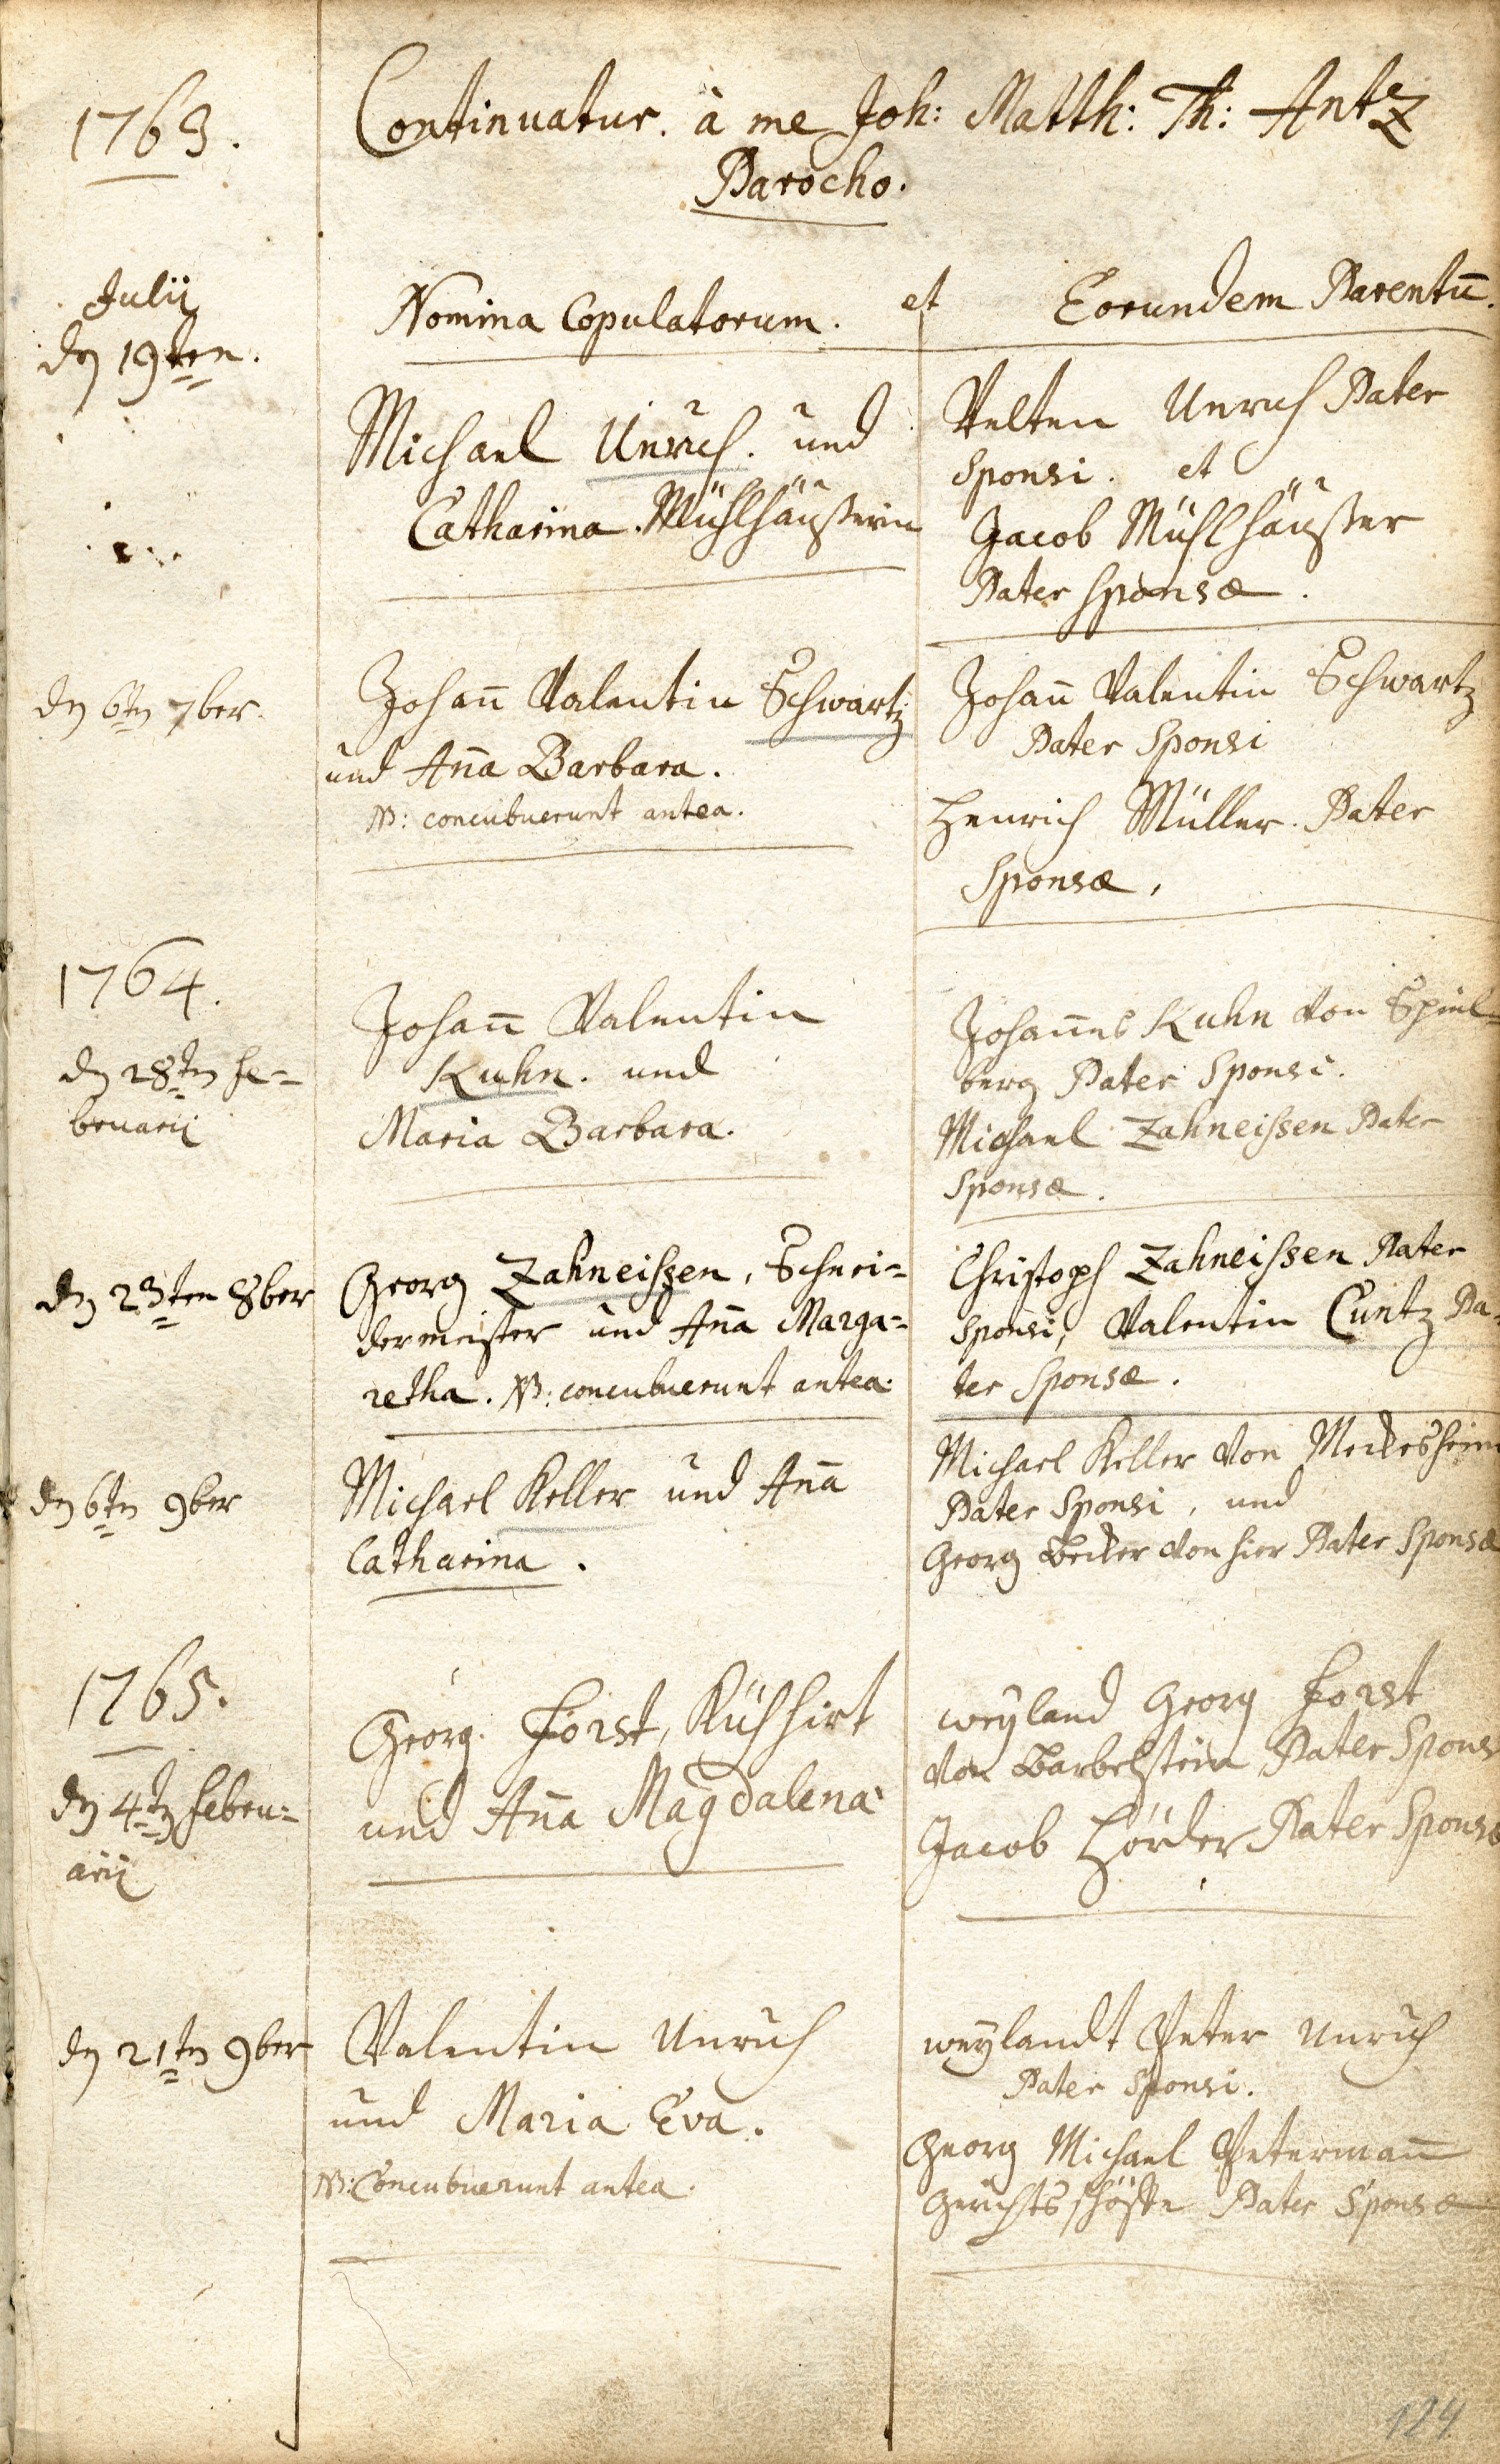 1763.
Continuatur. à me Joh: Matth: Th: Antz
Parocho.
Julii
dn 19ten.
Nomina Copulatorum. et Eorundem Parentū.
Michael Unruh. und
Catharina Mühlhäußerin
Velten Unruh Pater
Sponsi. et
Jacob Mühlhäußer
Pater Sponsæ.
dn 6tn 7ber.
Johañ Valentin Schwartz
und Aña Barbara.
NB: concubuerunt antea.
Johañ Valentin Schwartz
Pater Sponsi
Henrich Müller. Pater
Sponsæ.
1764.
dn 28tn Fe=
bruarii
Johañ Valentin
Kuhn. und
Maria Barbara.
Johañes Kuhn von Spiel=
berg Pater Sponsi.
Michael Zahneissen Pater
Sponsæ.
dn 23ten 8ber
Georg Zahneissen, Schnei=
dermeister und Aña Marga=
retha. NB: concubuerunt antea.
Christoph Zahneissen Pater
Sponsi, Valentin Cuntz Pa=
ter Sponsæ.
dn 6tn 9ber
Michael Keller und Aña
Catharina.
Michael Keller von Meckesheim
Pater Sponsi, und
Georg Becker von hier Pater Sponsæ
1765.
dn 4tn Febru=
arii
Georg Forst, Kühhirt
und Aña Magdalena
weyland Georg Forst
von Barbelstein Pater Sponsi
Jacob Hörder Pater Sponsæ
dn 21tn 9ber
Valentin Unruh
und Maria Eva.
NB: Concubuerunt antea.
weylandt Peter Unruh
Pater Sponsi.
Georg Michael Petermañ
Gerichtsschöffe Pater Sponsæ
124